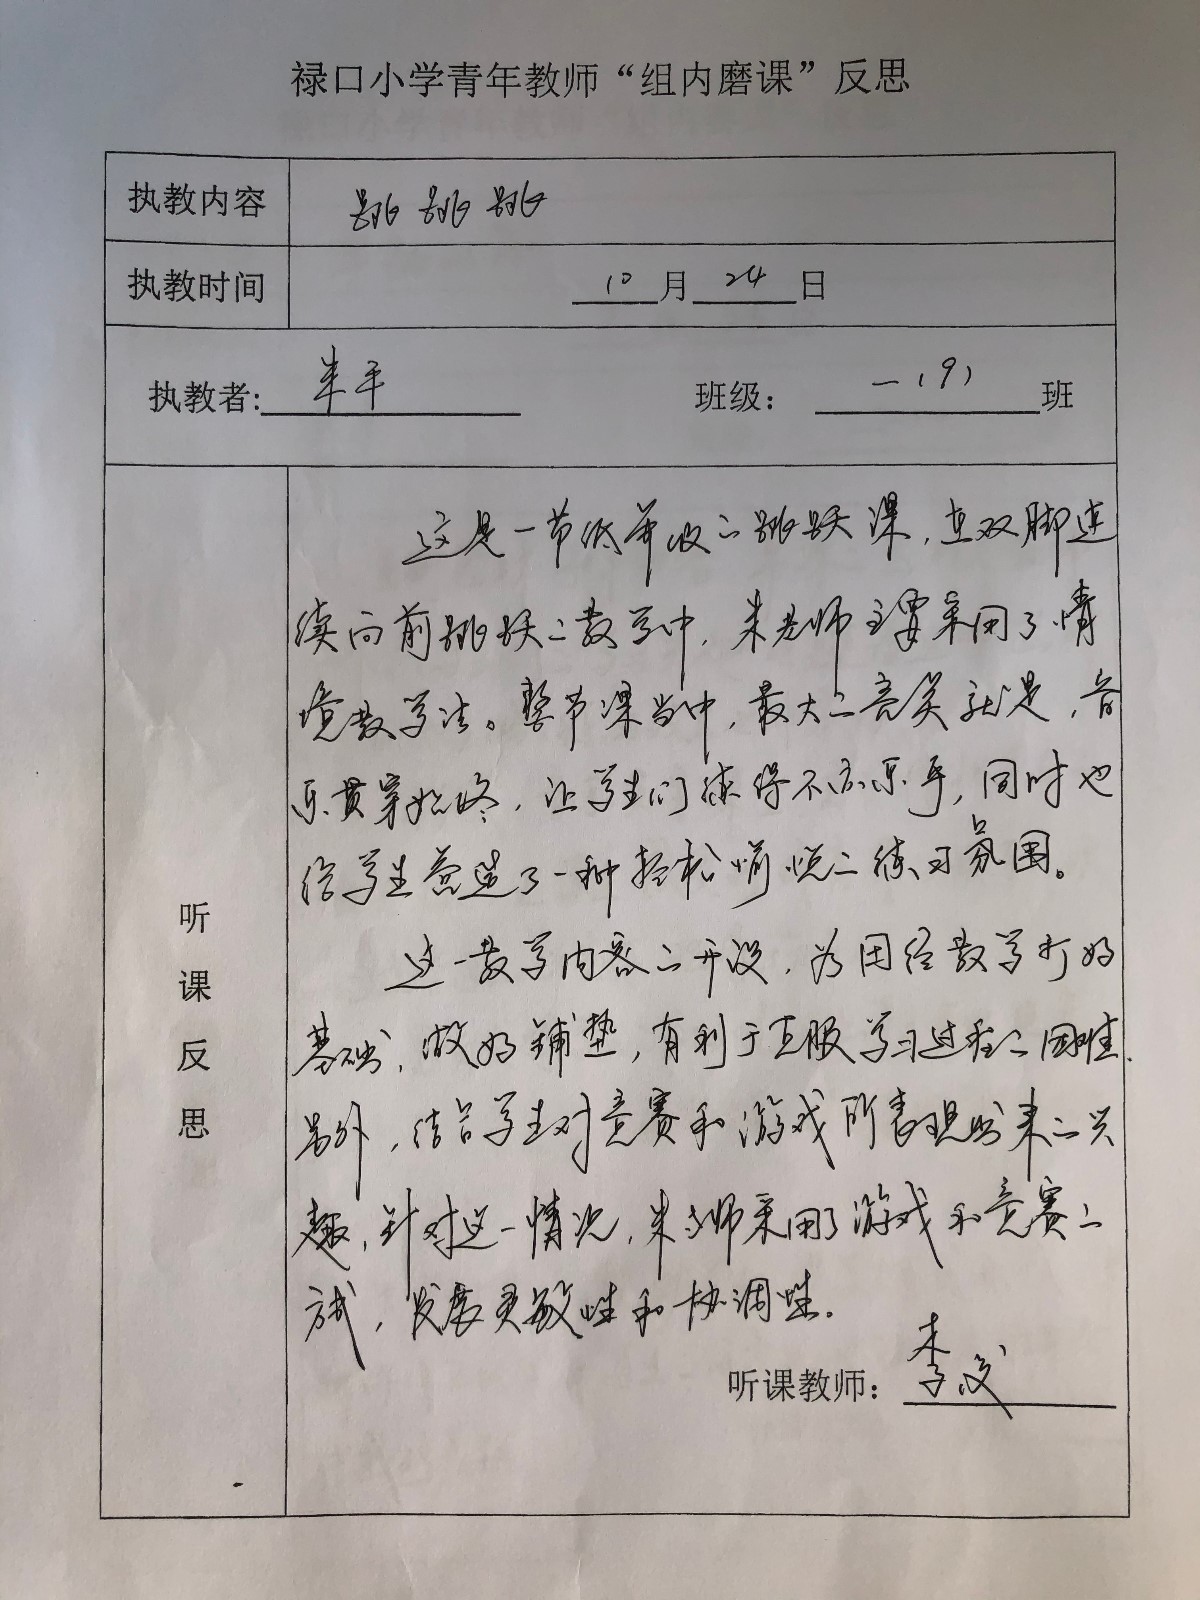 禄口小学青年教师“组内磨课”反思
执教内容 跳跳跳
执教时间 10月24日
执教者: 朱平 班级： 一（9）班
听课反思
这是一节低年级的跳跃课，在双脚连
续向前跳跃的教学中，朱老师主要采用了情
境教学法。整节课当中，最大的亮点就是，音
乐贯穿始终，让学生们练得不亦乐乎，同时也
给学生营造了一种轻松愉悦的练习氛围。
这一教学内容的开设，为田径教学打好
基础，做好铺垫，有利于克服学习过程的困难.
另外，结合学生对竞赛和游戏所表现出来的兴
趣，针对这一情况，朱老师采用了游戏和竞赛的
方式，发展灵敏性和协调性。
听课教师： 李